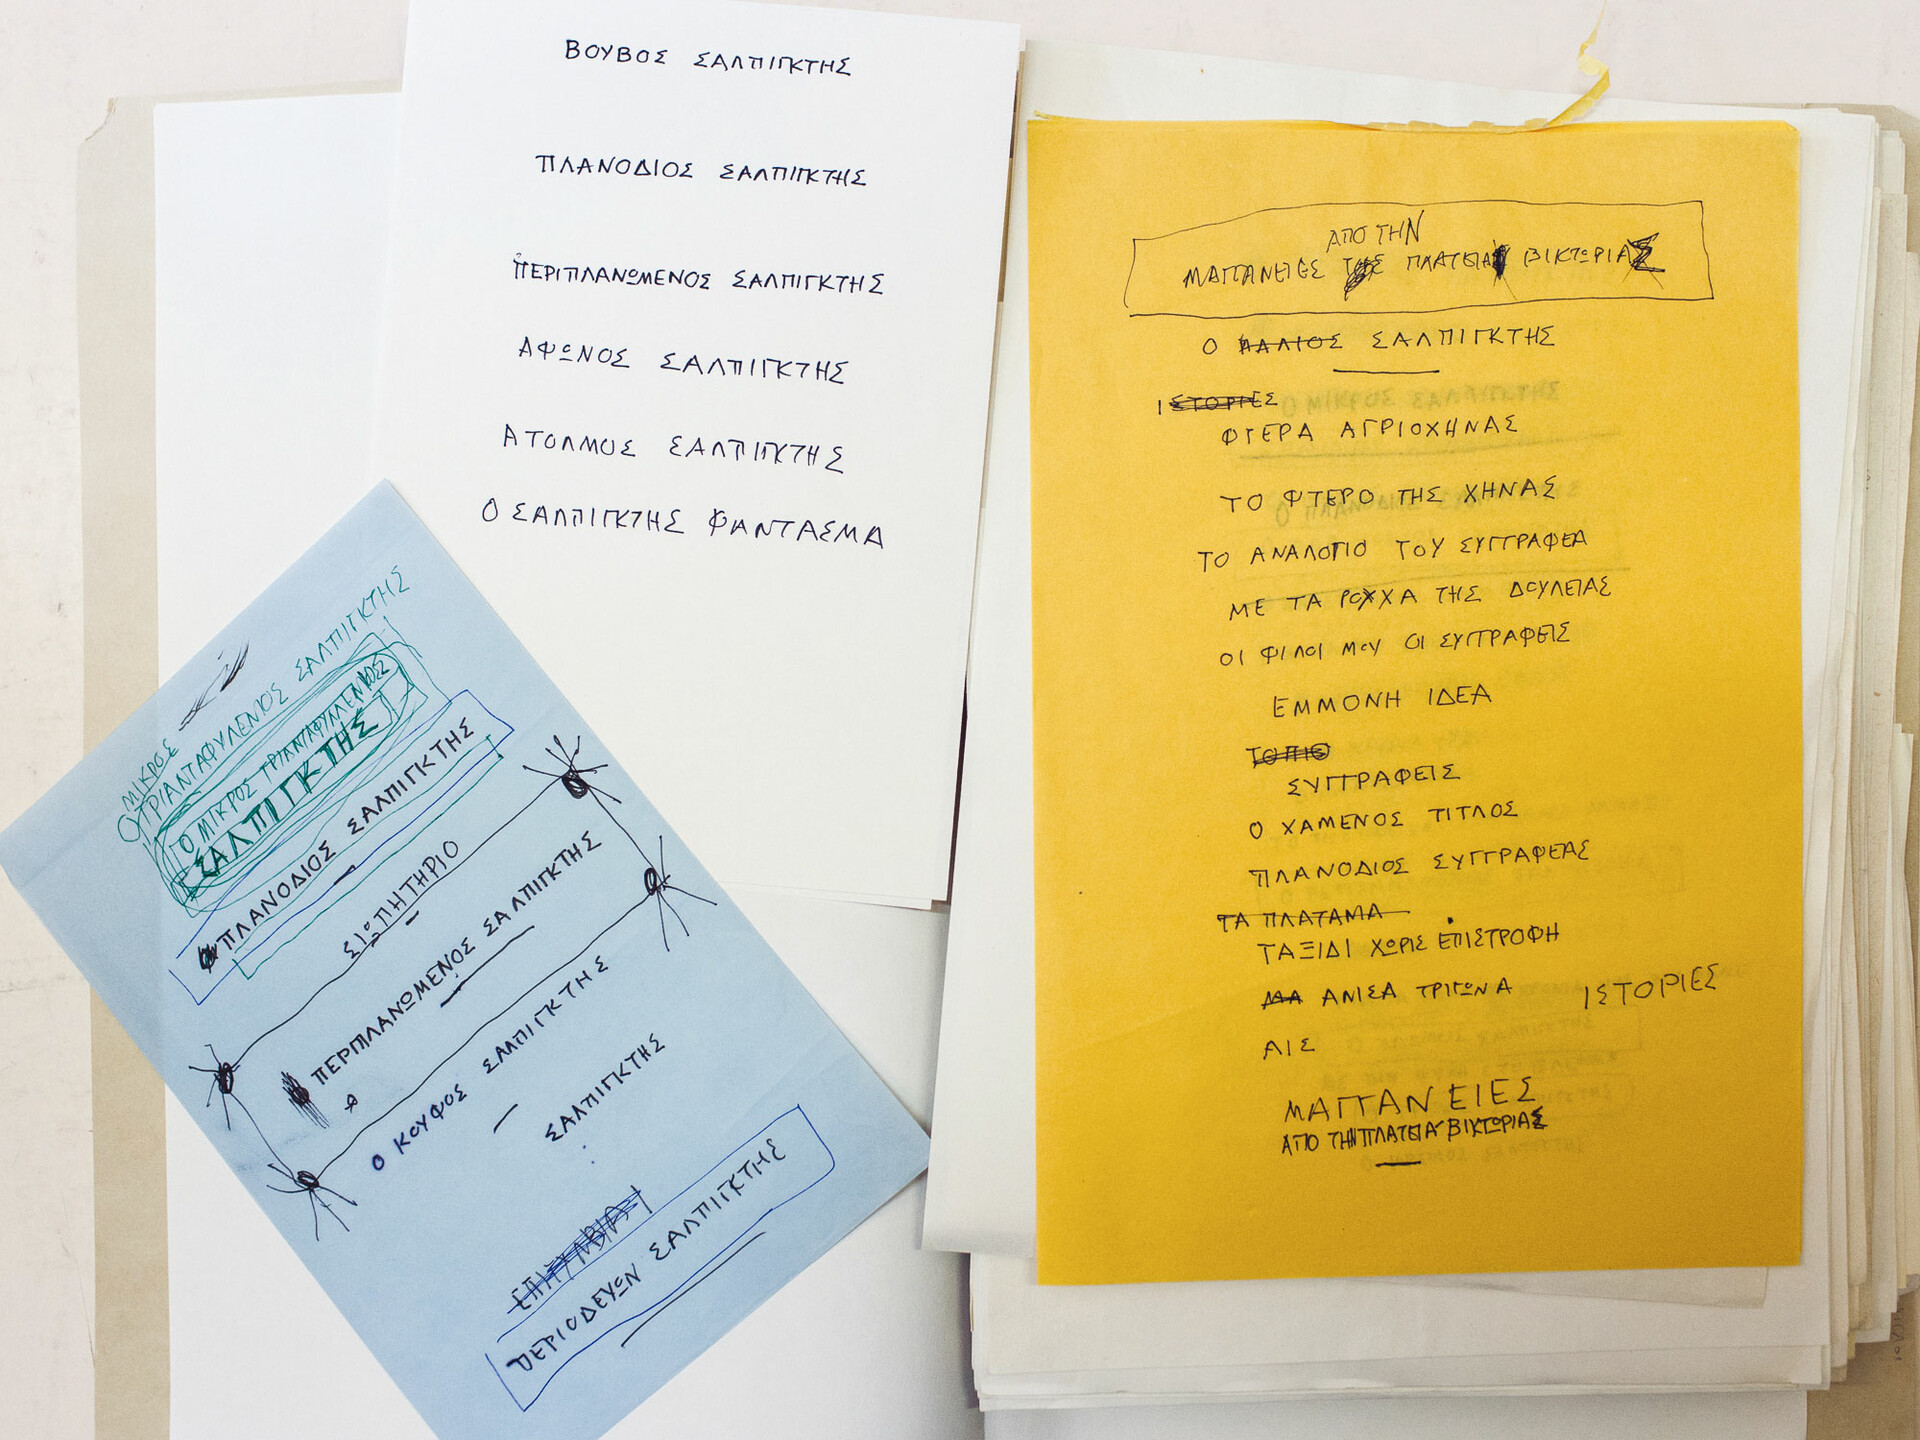 ΒΟΥΒΟΣ ΣΑΛΠΙΓΚΤΗΣ
ΠΛΑΝΟΔΙΟΣ ΣΑΛΠΙΓΚΤΗΣ
ΠΕΡΙΠΛΑΝΩΜΕΝΟΣ ΣΑΛΠΙΓΚΤΗΣ
ΑΦΩΝΟΣ ΣΑΛΠΙΓΚΤΗΣ
ΑΤΟΛΜΟΣ ΣΑΛΠΙΓΚΤΗΣ
Ο ΣΑΛΠΙΓΚΤΗΣ ΦΑΝΤΑΣΜΑ
ΜΙΚΡΟΣ
Ο ΤΡΙΑΝΤΑΦΥΛΕΝΙΟΣ ΣΑΛΠΙΓΚΤΗΣ
Ο ΜΙΚΡΟΣ ΤΡΙΑΝΤΑΦΥΛΛΕΝΙΟΣ
ΣΑΛΠΙΓΚΤΗΣ
ΠΛΑΝΟΔΙΟΣ ΣΑΛΠΙΓΚΤΗΣ
ΣΙΩΠΗΤΗΡΙΟ
ΠΕΡΙΠΛΑΝΩΜΕΝΟΣ ΣΑΛΠΙΓΚΤΗΣ
Ο ΚΟΥΦΟΣ ΣΑΛΠΙΓΚΤΗΣ
ΣΑΛΠΙΓΚΤΗΣ
ΠΕΡΙΟΔΕΥΩΝ ΣΑΛΠΙΓΚΤΗΣ
ΑΠΟ ΤΗΝ
ΜΑΓΓΑΝΕΙΕΣ ΤΗΣ ΠΛΑΤΕΙΑ ΒΙΚΤΩΡΙΑΣ
Ο ΠΑΛΙΟΣ ΣΑΛΠΙΓΚΤΗΣ
ΙΣΤΟΡΙΕΣ
ΦΤΕΡΑ ΑΓΡΙΟΧΗΝΑΣ
ΤΟ ΦΤΕΡΟ ΤΗΣ ΧΗΝΑΣ
ΤΟ ΑΝΑΛΟΓΙΟ ΤΟΥ ΣΥΓΓΡΑΦΕΑ
ΜΕ ΤΑ ΡΟΥΧΑ ΤΗΣ ΔΟΥΛΕΙΑΣ
ΟΙ ΦΙΛΟΙ ΜΟΥ ΟΙ ΣΥΓΓΡΑΦΕΙΣ
ΕΜΜΟΝΗ ΙΔΕΑ
ΤΟΠΙΟ
ΣΥΓΓΡΑΦΕΙΣ
Ο ΧΑΜΕΝΟΣ ΤΙΤΛΟΣ
ΠΛΑΝΟΔΙΟΣ ΣΥΓΓΡΑΦΕΑΣ
ΤΑ ΠΛΑΤΑΜΑ
ΤΑΞΙΔΙ ΧΩΡΙΣ ΕΠΙΣΤΡΟΦΗ
ΜΑ ΑΝΙΣΑ ΤΡΙΓΩΝΑ ΙΣΤΟΡΙΕΣ
ΑΙΣ
ΜΑΓΓΑΝΕΙΕΣ
ΑΠΟ ΤΗΝ ΠΛΑΤΕΙΑ ΒΙΚΤΩΡΙΑΣ